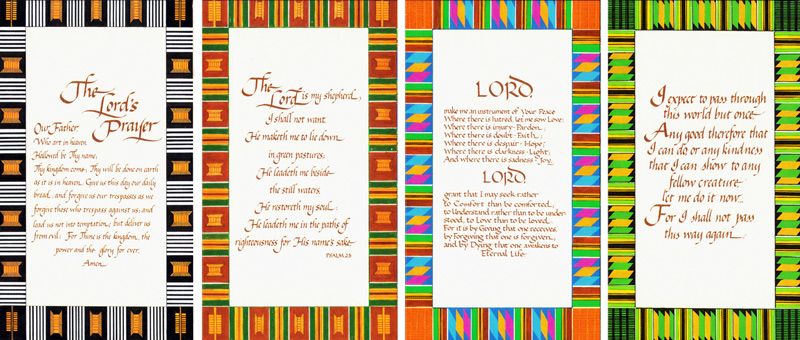 The
Lord's
Prayer
Our Father
Who art in heaven
Hallowed be Thy name.
Thy kingdom come, Thy will be done on earth
as it is in heaven. Give us this day our daily
bread, and forgive us our trespasses as we
forgive those who trespass against us; and
lead us not into temptation, but deliver us
from evil: For Thine is the kingdom, the
power and the glory for ever.
Amen
The
Lord is my shepherd,
I shall not want:
He maketh me to lie down
in green pastures:
He leadeth me beside
the still waters
He restoreth my soul:
He leadeth me in the paths of
righteousness for His name's sake
PSALM 23
LORD
make me an instrument of Your Peace
Where there is hatred, Let me sow Love;
Where there is injury · Pardon;
Where there is doubt · Faith;
Where there is despair · Hope;
Where there is darkness · Light;
And where there is sadness · Joy.
LORD
grant that I may seek rather
to Comfort than be comforted;
to Understand rather than to be under-
stood; to Love than to be loved;
For it is by Giving that one receives,
by Forgiving that one is forgiven;
and by Dying that one awakens to
Eternal Life
I expect to pass through
this world but once
Any good therefore that
I can do or any kindness
that I can show to any
fellow creature
let me do it now
For I shall not pass
this way again